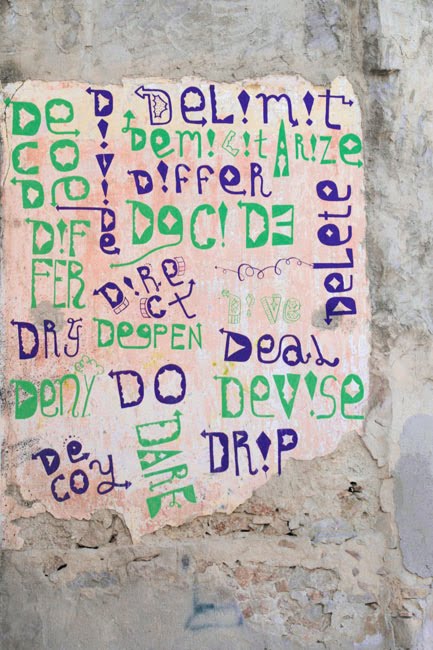 De
CO
De
DiviDe
DeLimit
DemiLitARize
DiFFer
DeCiDE
DeLete
DiF
FER
DiRe
ct
Dive
DRY
DeePEN
DeaL
Deny
DO
Devise
De
coy
DARE
DRiP